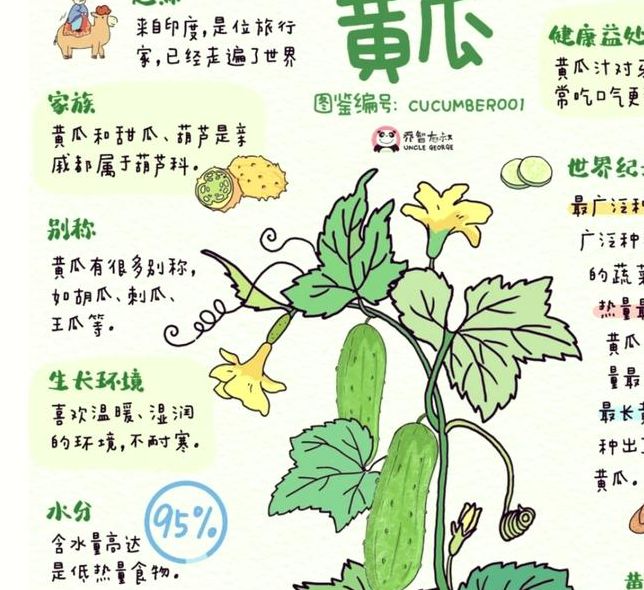 来自印度,是位旅行
家,已经走遍了世界
黄瓜
图鉴编号: CUCUMBER001
乔智大叔
UNCLE GEORGE
家族
黄瓜和甜瓜、葫芦是亲
戚都属于葫芦科。
别称
黄瓜有很多别称,
如胡瓜、刺瓜、
王瓜等。
生长环境
喜欢温暖、湿润
的环境,不耐寒。
水分
95%
含水量高达
是低热量食物。
健康益处
黄瓜汁对牙
常吃口气更
世界纪
最广泛种
广泛种
的蔬菜
热量最
黄瓜
量最
最长黄
种出
黄瓜。
黄